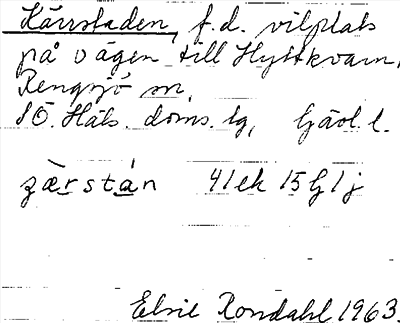 Kärrstaden, f.d. vilplats
på vägen till Hyttkvarn,
Rengsjö sn,
SÖ. Häls. doms. lg, Gävl. l.
zæ̀rstán 41ek 15G1j
Elsie Rondahl 1963.